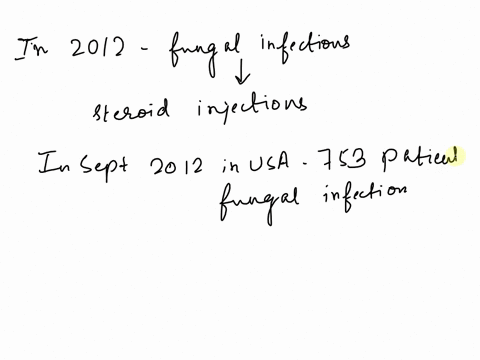 In 2012 - fungal infections
↓
steroid injections
In Sept 2012 in USA - 753 patient
fungal infection